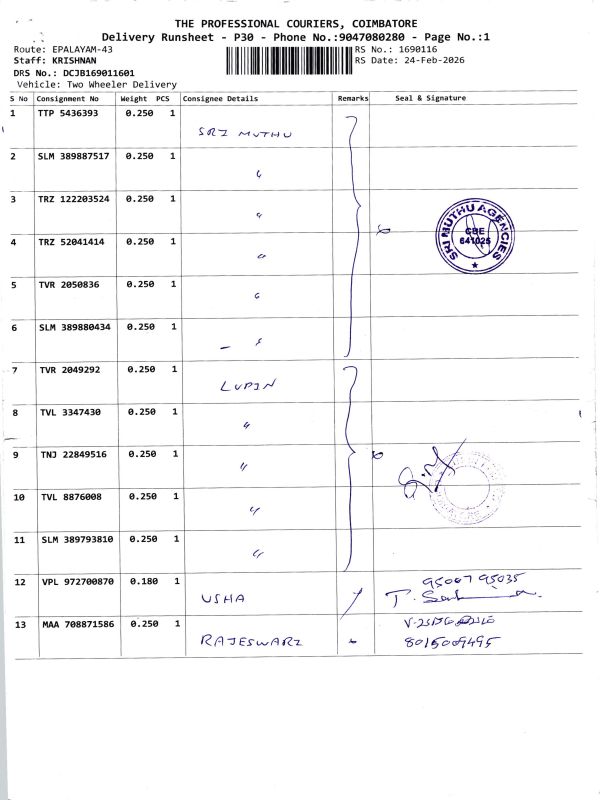 THE PROFESSIONAL COURIERS, COIMBATORE
Delivery Runsheet - P30 - Phone No.:9047080280 - Page No.:1
Route: EPALAYAM-43
RS No.: 1690116
Staff: KRISHNAN
RS Date: 24-Feb-2026
DRS No.: DCJB169011601
Vehicle: Two Wheeler Delivery
S No Consignment No Weight PCS Consignee Details Remarks Seal & Signature
1 TTP 5436393 0.250 1 SRI MUTHU
2 SLM 389887517 0.250 1 "
3 TRZ 122203524 0.250 1 "
4 TRZ 52041414 0.250 1 " 6
SRI MUTHU AGENCIES CBE 641025
5 TVR 2050836 0.250 1 "
6 SLM 389880434 0.250 1 - "
7 TVR 2049292 0.250 1 LUPIN
8 TVL 3347430 0.250 1 "
9 TNJ 22849516 0.250 1 "
10 TVL 8876008 0.250 1 "
11 SLM 389793810 0.250 1 "
12 VPL 972700870 0.180 1 USHA 95007 95035
13 MAA 708871586 0.250 1 RAJESWARI
8015009495